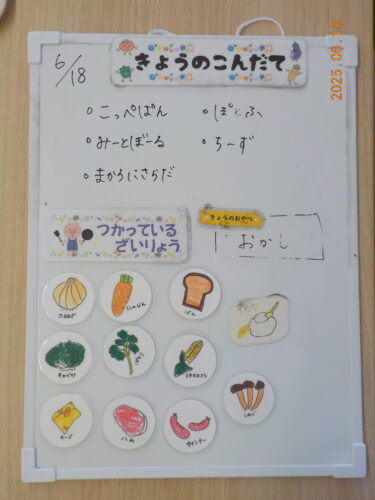 きょうのこんだて
6/18
2025.06.18
こっぺぱん
ぽとふ
みーとぼーる
ちーず
まかろにさらだ
つかっている
ざいりょう
きょうのおやつ
おかし
たまねぎ
にんじん
ぱん
さとう
キャベツ
ぱせり
トウモロコシ
しめじ
チーズ
ハム
ウインナー